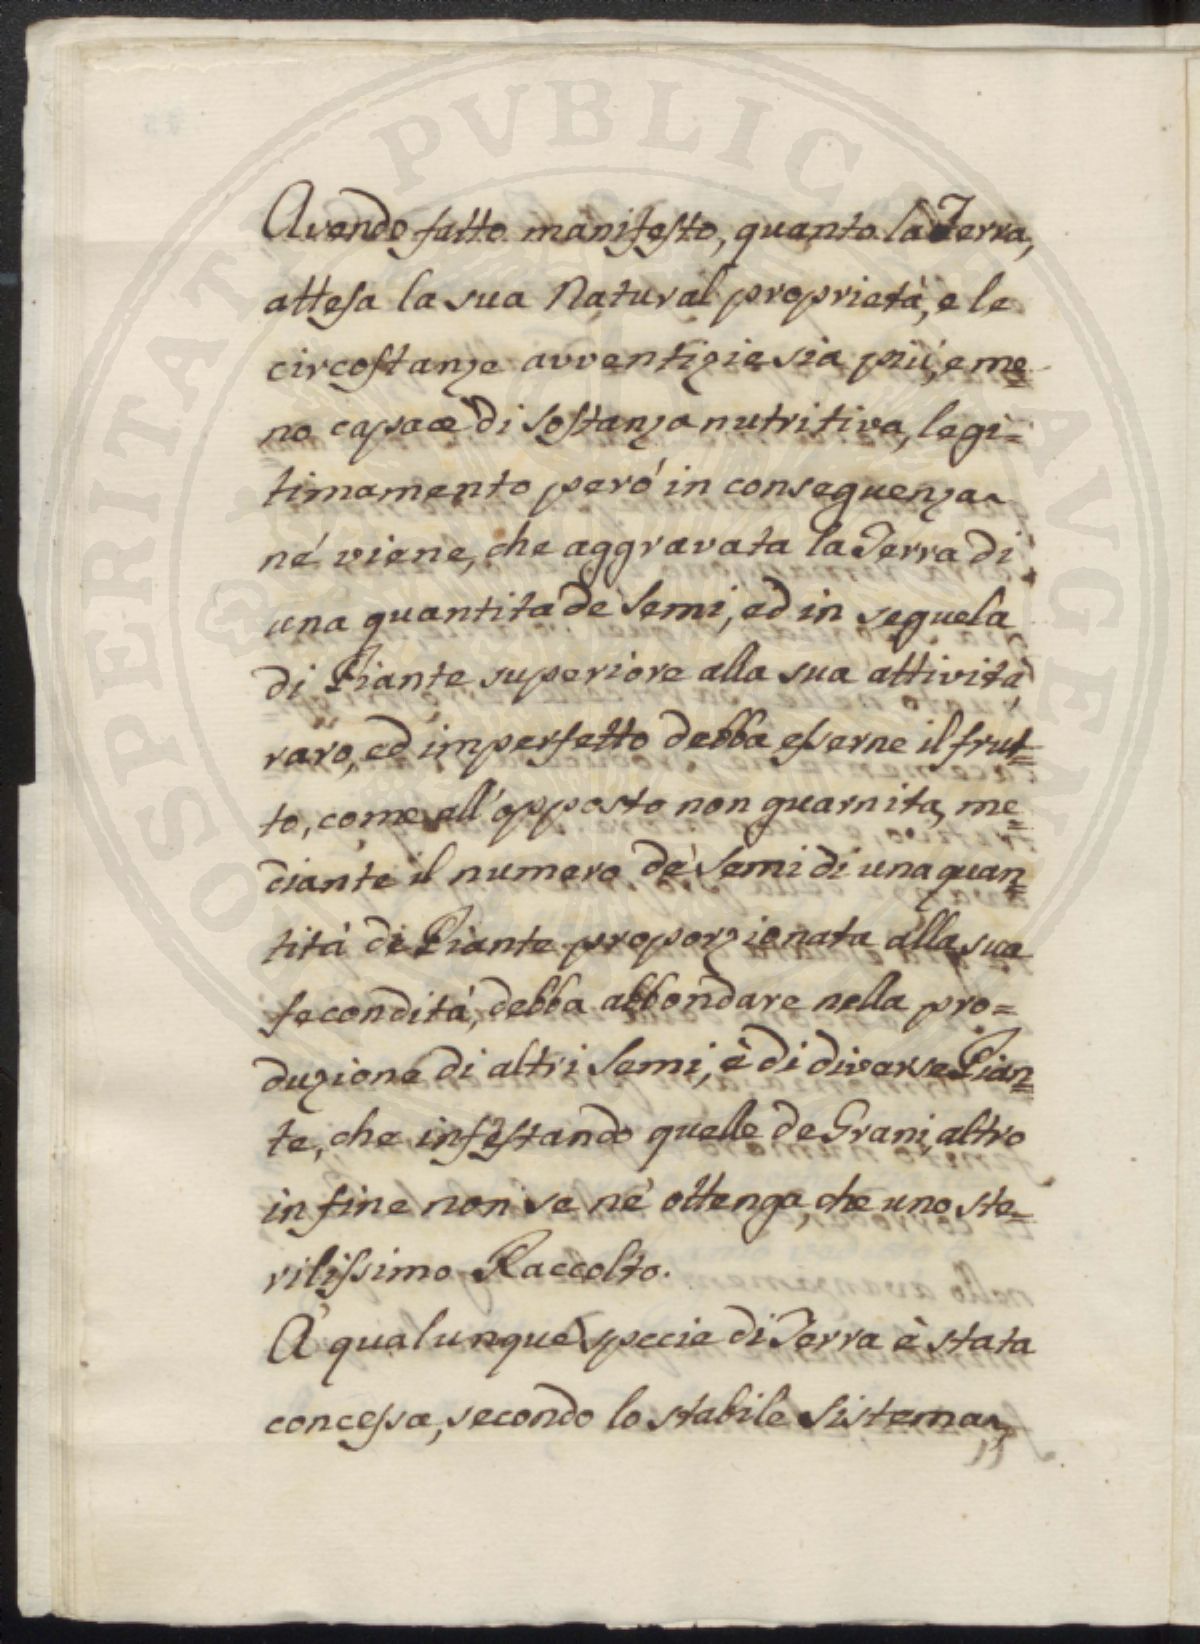 Avendo fatto manifesto, quanto la Terra,
attesa la sua Natural proprietà, e le
circostanze avventizie sia più, e me=
no capace di sostanza nutritiva, legi=
timamente peró in conseguenza
né viene, che aggravata la Terra di
una quantità de Semi, ed in seguela
di Piante superiore alla sua attività,
raro, ed imperfetto debba esserne il frut=
to, come all'opposto non guarnita, me=
diante il numero de' Semi di una quan=
titá di Piante proporzionata alla sua
fecondità, debba abbondare nella pro=
duzione di altri Semi, è di diverse Pian=
te, che infestando quelle de Grani, altro
in fine non se né ottenga, che uno ste=
rilissimo Raccolto.
A' qualunque specie di Terra è stata
concessa, secondo lo stabile Sistema,
PROSPERITATI PVBLICAE AVGENDAE